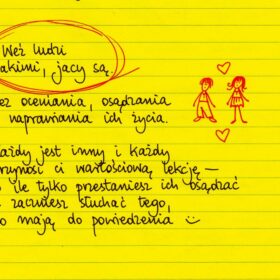 Weź ludzi
akimi, jacy są,
ez oceniania, osądzania
naprawiania ich życia.
ażdy jest inny i każdy
rzynosi ci wartościową lekcję —
o ile tylko przestaniesz ich osądzać
zaczniesz słuchać tego,
o mają do powiedzenia